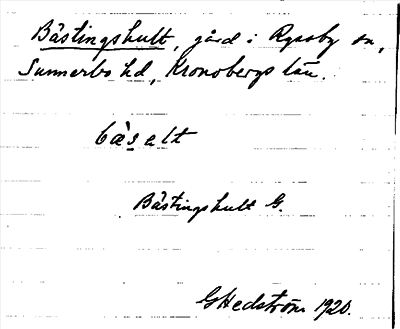 Bästingshult, gård i Ryssby sn,
Sunnerbo hd, Kronobergs län.
bæ̀salt
Bästingshult G.
GHedström 1920.